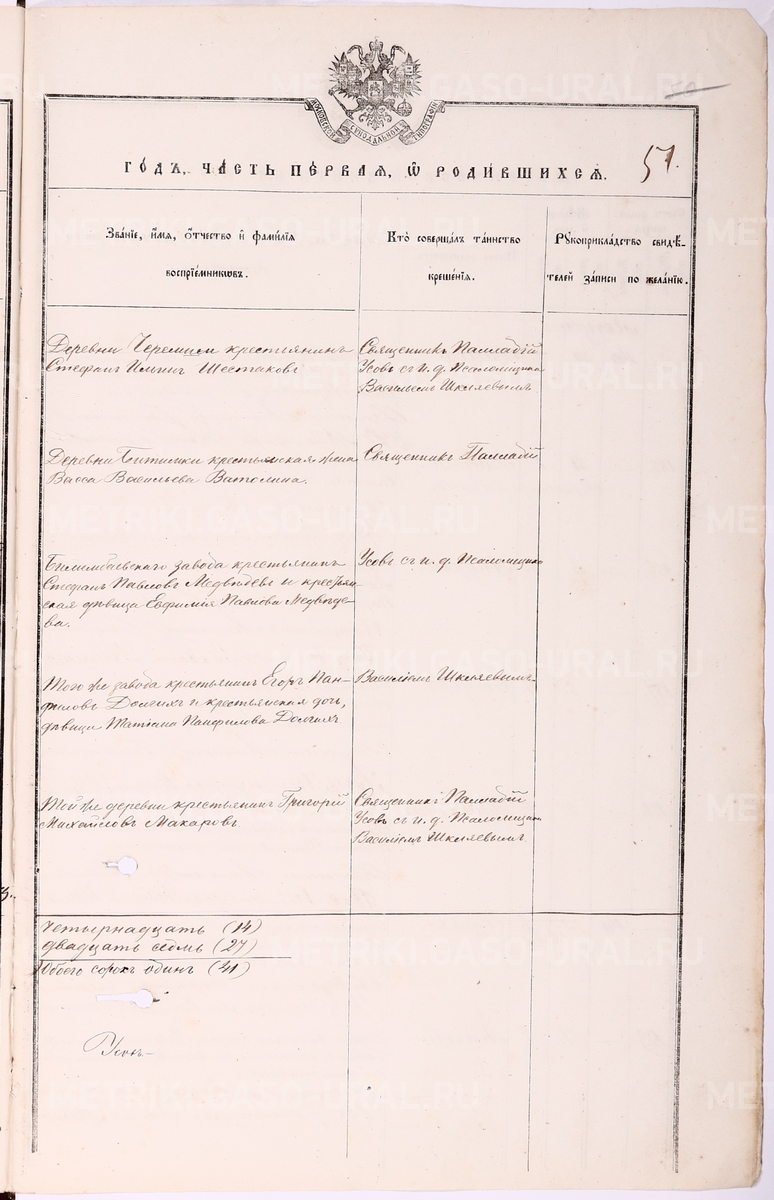 МОСКОВСКОЙ СѴНОДАЛЬНОЙ ТИПОГРАФІИ
50
51.
ГО́ДЪ, ЧА́СТЬ ПЕ́РВАЯ, Ѡ҆ РОДИ́ВШИХСЯ.
Зва́нїе, и҆́мя, ѻ҆́тчество и҆ фами́лїя
воспрїе́мниковъ.
Кто̀ соверша́лъ та́инство
креще́нїя.
Рꙋкоприкла́дство свидѣ́-
телей за́писи по жела́нїю.
Деревни Черемши крестьянинъ
Стефанъ Ильинъ Шестаковъ
Священникъ Палладій
Усовъ съ и. д. Псаломщика
Васильемъ Шкляевымъ
Деревни Битимки крестьянская жена
Васса Васильева Ватолина.
Священникъ Палладій
Билимбаевскаго завода крестьянинъ
Стефанъ Павловъ Медвѣдевъ и крестьян-
ская дѣвица Евфимія Павлова Медвѣде-
ва.
Усовъ съ и. д. Псаломщика
Того же завода крестьянинъ Егоръ Пан-
филовъ Долгихъ и крестьянская дочь,
дѣвица Татіана Панфилова Долгихъ
Василіемъ Шкляевымъ.
Той же деревни крестьянинъ Григорій
Михайловъ Макаровъ
Священникъ Палладій
Усовъ съ и. д. Псаломщика
Василіемъ Шкляевымъ
Четырнадцать (14)
двадцать седмь (27)
Обоего сорокъ одинъ (41)
Усовъ.
METRIKI.GASO-URAL.RU